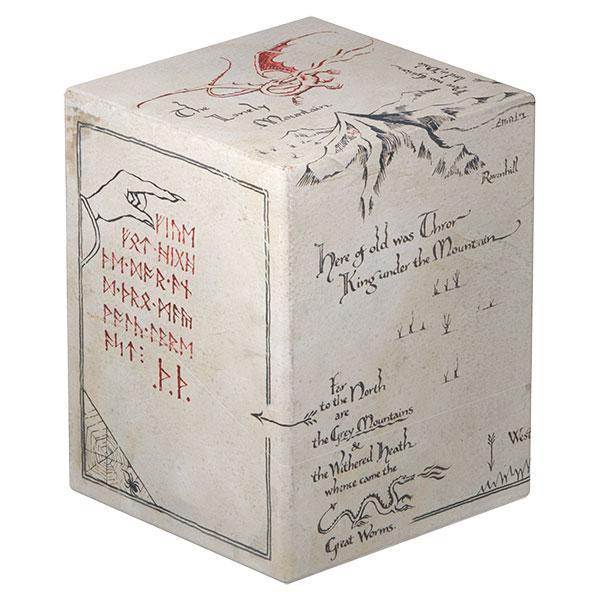 Here was Girion
lord in Dale
The Lonely
Mountain
Ravenhill
Here of old was Thror
King under the Mountain
Far
to the North
are
the Grey Mountains
&
the Withered Heath
whence came the
Great Worms.
West
ᚠᛁᚢᛖ
ᚠᛟᛏ·ᚻᛁᚷᚻ
ᚦᛖ·ᛞᚩᚱ·ᚪᚾ
ᛞ·ᚦᚱᛟ·ᛗᚪᚣ
ᚹᚪᛚᚳ·ᚪᛒᚱᛖ
ᚪᛋᛏ:
·ᚦ·ᚦ·